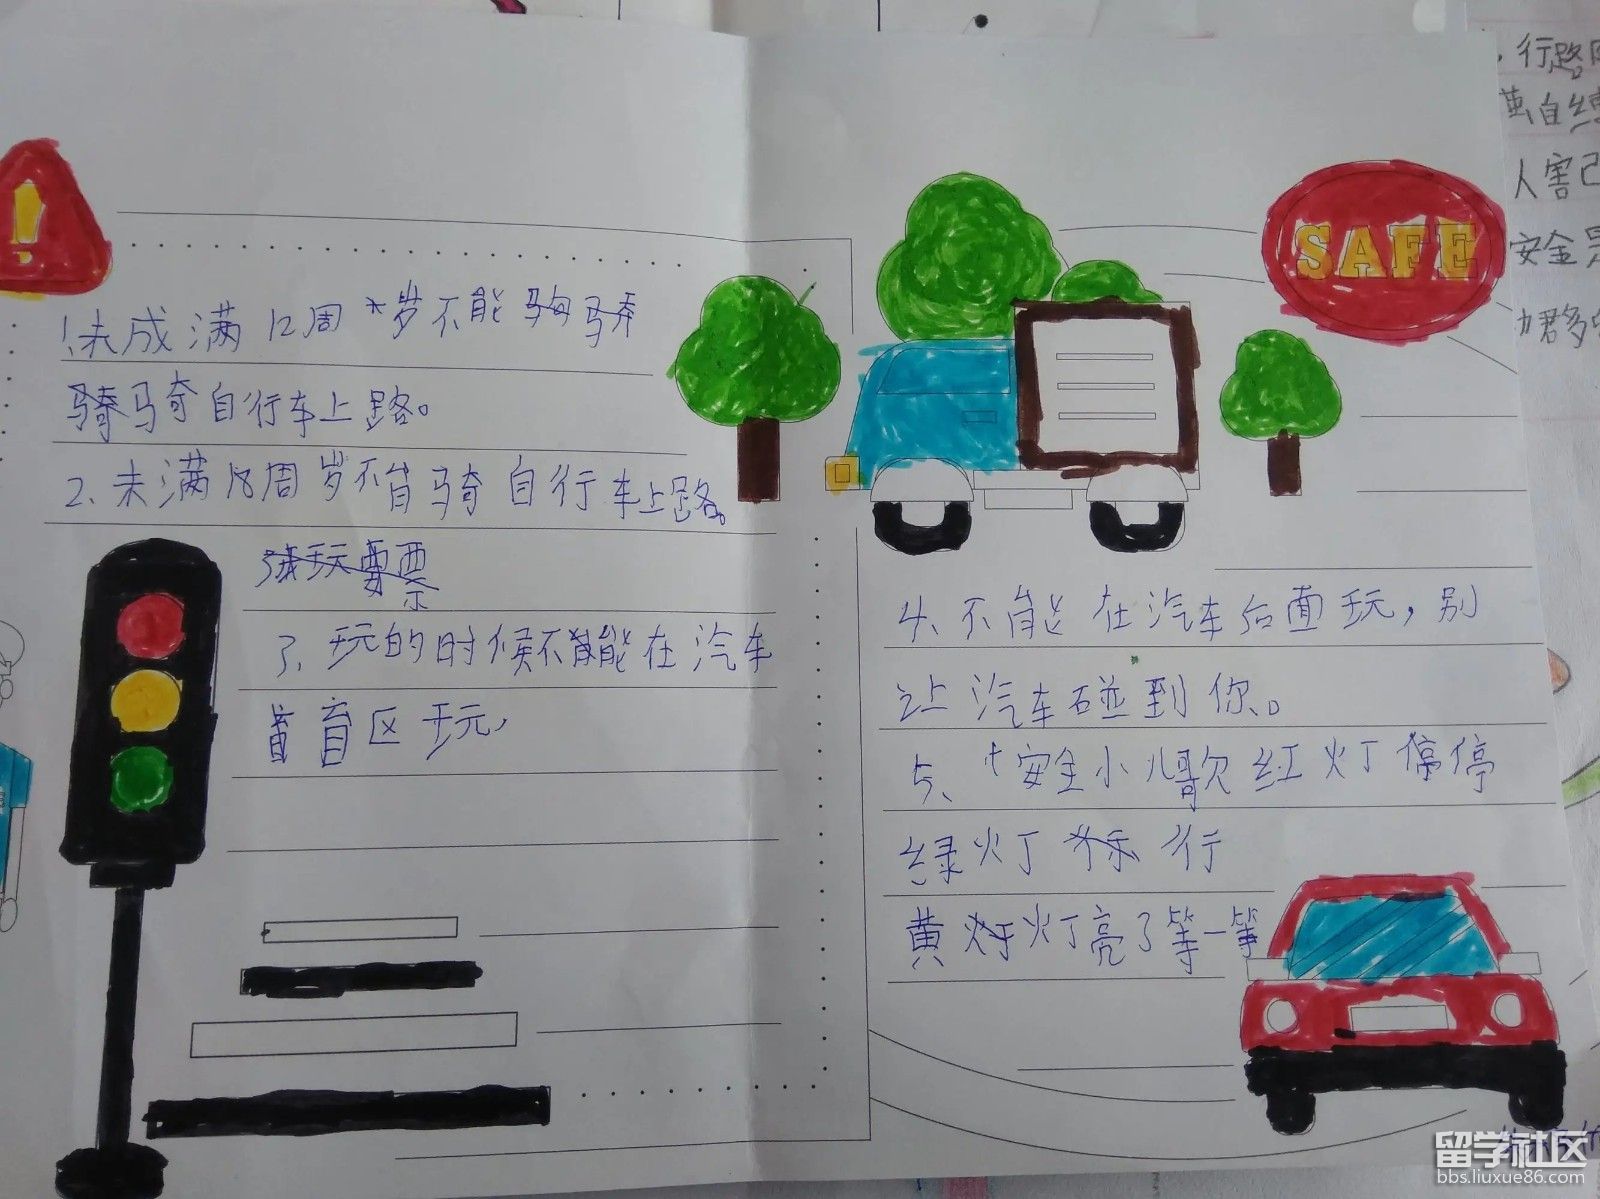 1.未成满12周岁不能
骑自行车上路。
2、未满18周岁不骑自行车上路。
3、玩的时候不能在汽车
盲区玩,
SAFE
4、不能在汽车后面玩，别
让汽车碰到你。
5、安全小儿歌红灯停停
绿灯行
黄灯亮了等一等
行路
自缚
人害己
安全是
留学社区
bbs.liuxue86.com